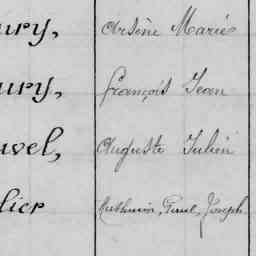 ury, Arsène Marie
ury, François Jean
uvel, Auguste Julien
lier Mathurin, Paul, Joseph